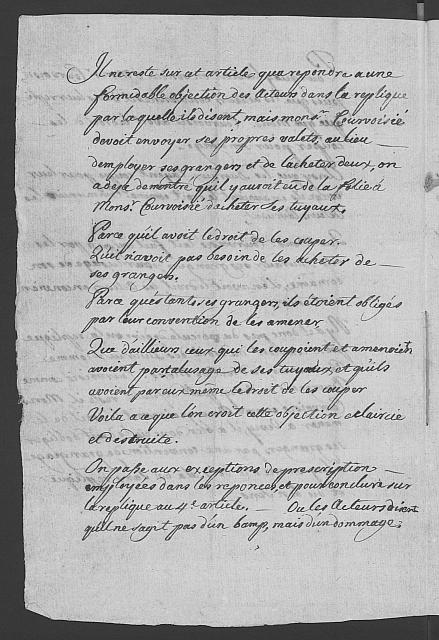 Il ne reste sur cet article qua repondre a une
formidable objection des Acteurs dans la replique
par laquelle ils disent, mais monsr. Courvoisié
devoit envoyer ses propres valets, au lieu
demployer ses grangers et de lacheter deux, on
a deja demontré quil y auroit eu de la folie à
Monsr. Courvoisié dacheter les tuyaux.
Parce quil avoit le droit de les couper.
Quil navoit pas besoin de les acheter de
ses grangers.
Parce questants ses grangers, ils étoient obligés
par leur convention de les amener
Que dailleurs ceux qui les coupoient et amenoient
avoient part alusage de ses tuyaux et quils
avoient par eux meme le droit de les couper
Voila a ce que lon croit cette objection éclaircie
et destruite.
On passe aux exceptions de prescription
employées dans les reponces, et pour conclure sur
la replique au 4e. article. Ou les Acteurs disent
quil ne sagit pas dun bamp, mais dun dommage,